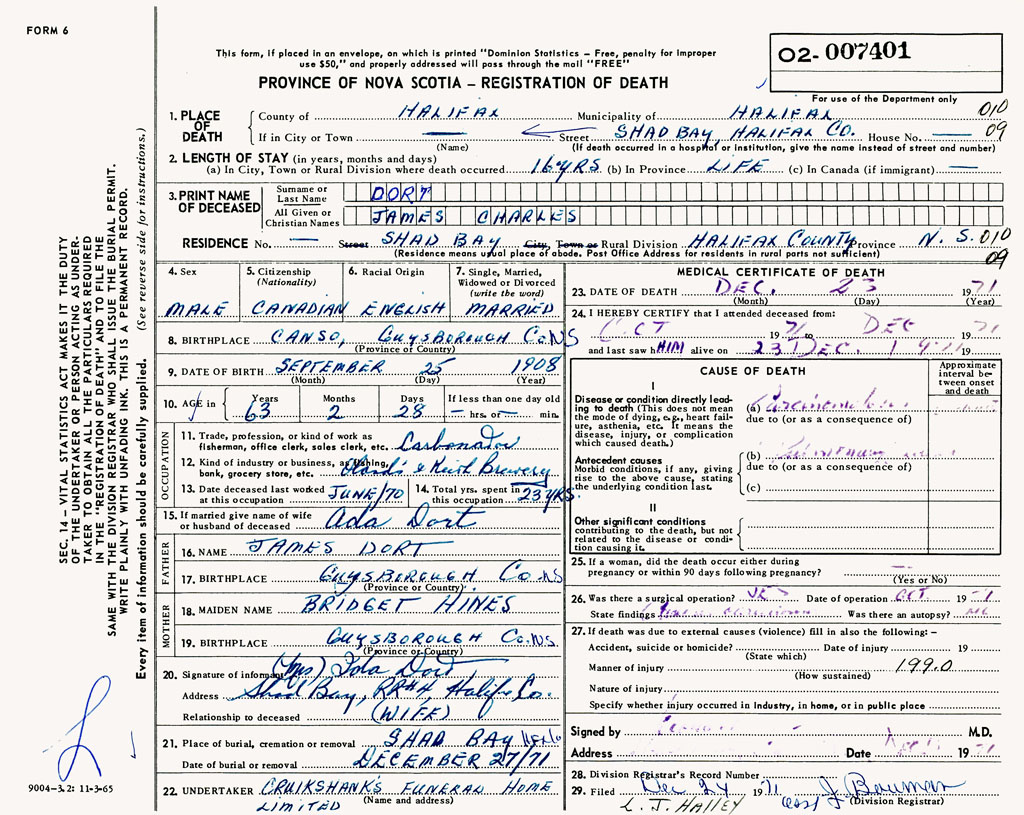 FORM 6
This form, if placed in an envelope, on which is printed "Dominion Statistics – Free, penalty for improper
use $50," and properly addressed will pass through the mail "FREE"
O2-007401
PROVINCE OF NOVA SCOTIA – REGISTRATION OF DEATH
For use of the Department only
1. PLACE OF DEATH
County of HALIFAX Municipality of HALIFAX 010
If in City or Town — Street SHAD BAY, HALIFAX CO. House No. — 09
(Name) (If death occurred in a hospital or institution, give the name instead of street and number)
2. LENGTH OF STAY (in years, months and days)
(a) In City, Town or Rural Division where death occurred 16 YRS (b) In Province LIFE (c) In Canada (if immigrant) —
3. PRINT NAME OF DECEASED
Surname or Last Name DORT
All Given or Christian Names JAMES CHARLES
RESIDENCE No. — Street SHAD BAY City, Town or Rural Division HALIFAX COUNTY Province N.S. 010
(Residence means usual place of abode. Post Office Address for residents in rural parts not sufficient) 09
4. Sex 5. Citizenship (Nationality) 6. Racial Origin 7. Single, Married, Widowed or Divorced (write the word)
MALE CANADIAN ENGLISH MARRIED
8. BIRTHPLACE CANSO, GUYSBOROUGH Co. NS
(Province or Country)
9. DATE OF BIRTH SEPTEMBER 25 1908
(Month) (Day) (Year)
10. AGE in Years Months Days If less than one day old
63 2 28 — hrs. or — min.
OCCUPATION
11. Trade, profession, or kind of work as
fisherman, office clerk, sales clerk, etc. Carbonator
12. Kind of industry or business, as fishing,
bank, grocery store, etc. & Keith Brewery
13. Date deceased last worked at this occupation JUNE/70
14. Total yrs. spent in this occupation 23 YRS.
15. If married give name of wife
or husband of deceased Ada Dort
FATHER
16. NAME JAMES DORT
17. BIRTHPLACE GUYSBOROUGH Co. NS
(Province or Country)
MOTHER
18. MAIDEN NAME BRIDGET HINES
19. BIRTHPLACE GUYSBOROUGH Co. N.S.
(Province or Country)
20. Signature of informant (Mrs) Dort
Address Shad Bay, RR#4, Halifx Co.
Relationship to deceased (WIFE)
21. Place of burial, cremation or removal SHAD BAY
Date of burial or removal DECEMBER 27/71
22. UNDERTAKER CRUIKSHANK'S FUNERAL HOME
(Name and address)
LIMITED
MEDICAL CERTIFICATE OF DEATH
23. DATE OF DEATH DEC. 23 1971
(Month) (Day) (Year)
24. I HEREBY CERTIFY that I attended deceased from:
OCT 1971 DEC 1971
and last saw hHIM alive on 23 DEC. 19
CAUSE OF DEATH
Approximate interval between onset and death
I
Disease or condition directly leading to death (This does not mean the mode of dying, e.g., heart failure, asthenia, etc. It means the disease, injury, or complication which caused death.)
(a) Carcinoma
due to (or as a consequence of)
Antecedent causes
Morbid conditions, if any, giving rise to the above cause, stating the underlying condition last.
(b)
due to (or as a consequence of)
(c)
II
Other significant conditions
contributing to the death, but not related to the disease or condition causing it.
25. If a woman, did the death occur either during
pregnancy or within 90 days following pregnancy? —
(Yes or No)
26. Was there a surgical operation? YES Date of operation OCT 19
State findings Was there an autopsy? NO
27. If death was due to external causes (violence) fill in also the following: –
Accident, suicide or homicide? Date of injury 19
(State which)
Manner of injury 199.0
(How sustained)
Nature of injury
Specify whether injury occurred in industry, in home, or in public place
Signed by M.D.
Address Date 19
28. Division Registrar's Record Number
29. Filed Dec 24 1971 J Bowman
(Division Registrar)
L. J. HALLEY
SEC. 14 – VITAL STATISTICS ACT MAKES IT THE DUTY
OF THE UNDERTAKER OR PERSON ACTING AS UNDER-
TAKER TO OBTAIN ALL THE PARTICULARS REQUIRED
IN THE "REGISTRATION OF DEATH" AND TO FILE THE
SAME WITH THE DIVISION REGISTRAR WHO SHALL ISSUE THE BURIAL PERMIT.
WRITE PLAINLY WITH UNFADING INK. THIS IS A PERMANENT RECORD.
Every item of information should be carefully supplied. (See reverse side for instructions.)
9004-3.2: 11-3-65